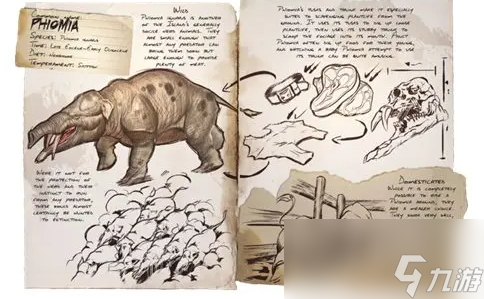 PHIOMIA
SPECIES: PHIOMIA IGNARIS
TIME: LATE EOCENE-EARLY OLIGOCENE
DIET: HERBIVORE
TEMPERAMENT: SKITTISH
WILD
PHIOMIA IGNARIS IS ANOTHER OF
THE ISLAND'S GENERALLY
DOCILE HERD ANIMALS. THEY
ARE SMALL ENOUGH THAT
ALMOST ANY PREDATOR CAN
BRING THEM DOWN BUT
LARGE ENOUGH TO PROVIDE
PLENTY OF MEAT.
WERE IT NOT FOR
THE PROTECTION OF
THE HERD AND THEIR
INSTINCT TO RUN
FROM ANY PREDATOR,
THESE WOULD ALMOST
CERTAINLY BE HUNTED
TO EXTINCTION.
PHIOMIA'S TUSKS AND TRUNK MAKE IT ESPECIALLY
SUITED TO SCAVENGING PLANTLIFE FROM THE
GROUND. IT USES ITS TUSKS TO DIG UP LOOSE
PLANTLIFE, THEN USES ITS STUBBY TRUNK TO
SCOOP THE FOLIAGE INTO ITS MOUTH. ADULT
PHIOMIA OFTEN DIG UP FOOD FOR THEIR YOUNG,
AND WATCHING A BABY PHIOMIA ATTEMPT TO USE
ITS TRUNK CAN BE QUITE AMUSING.
DOMESTICATED
WHILE IT IS COMPLETELY
POSSIBLE TO RIDE A
PHIOMIA AROUND, THEY
ARE A MEAGER CHOICE.
THEY
VERY WELL,
九游